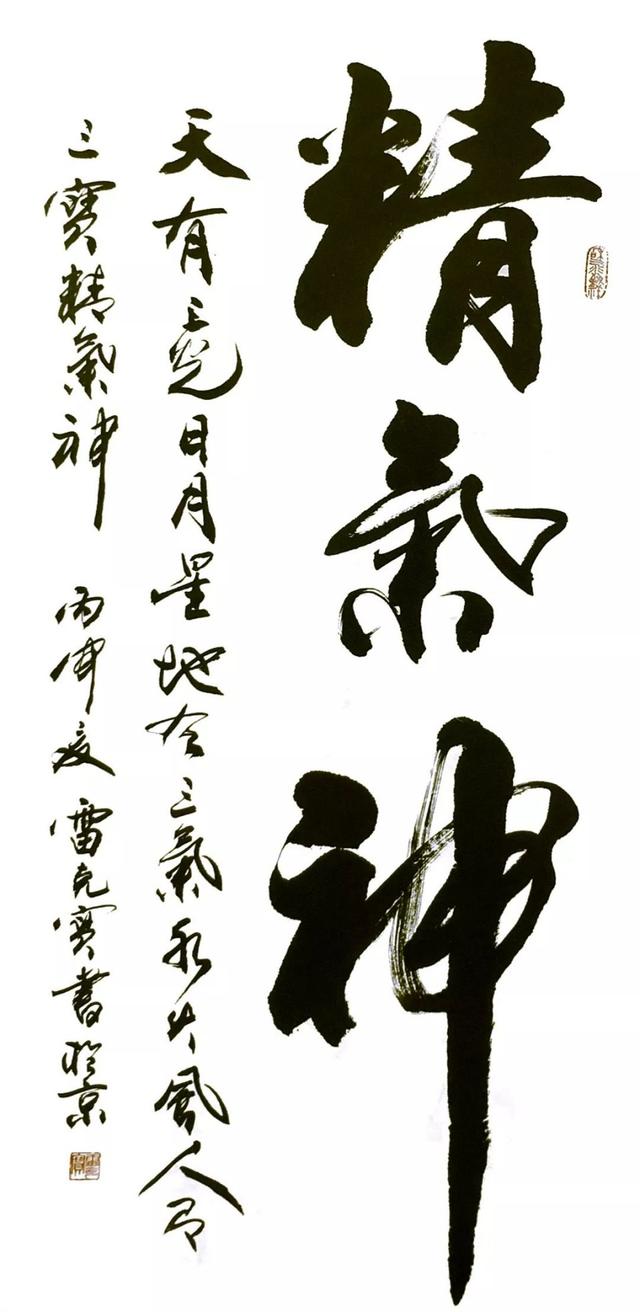 精氣神
天有三光日月星地有三氣水火風人有
三寶精氣神 丙申夏雷克寶書於京